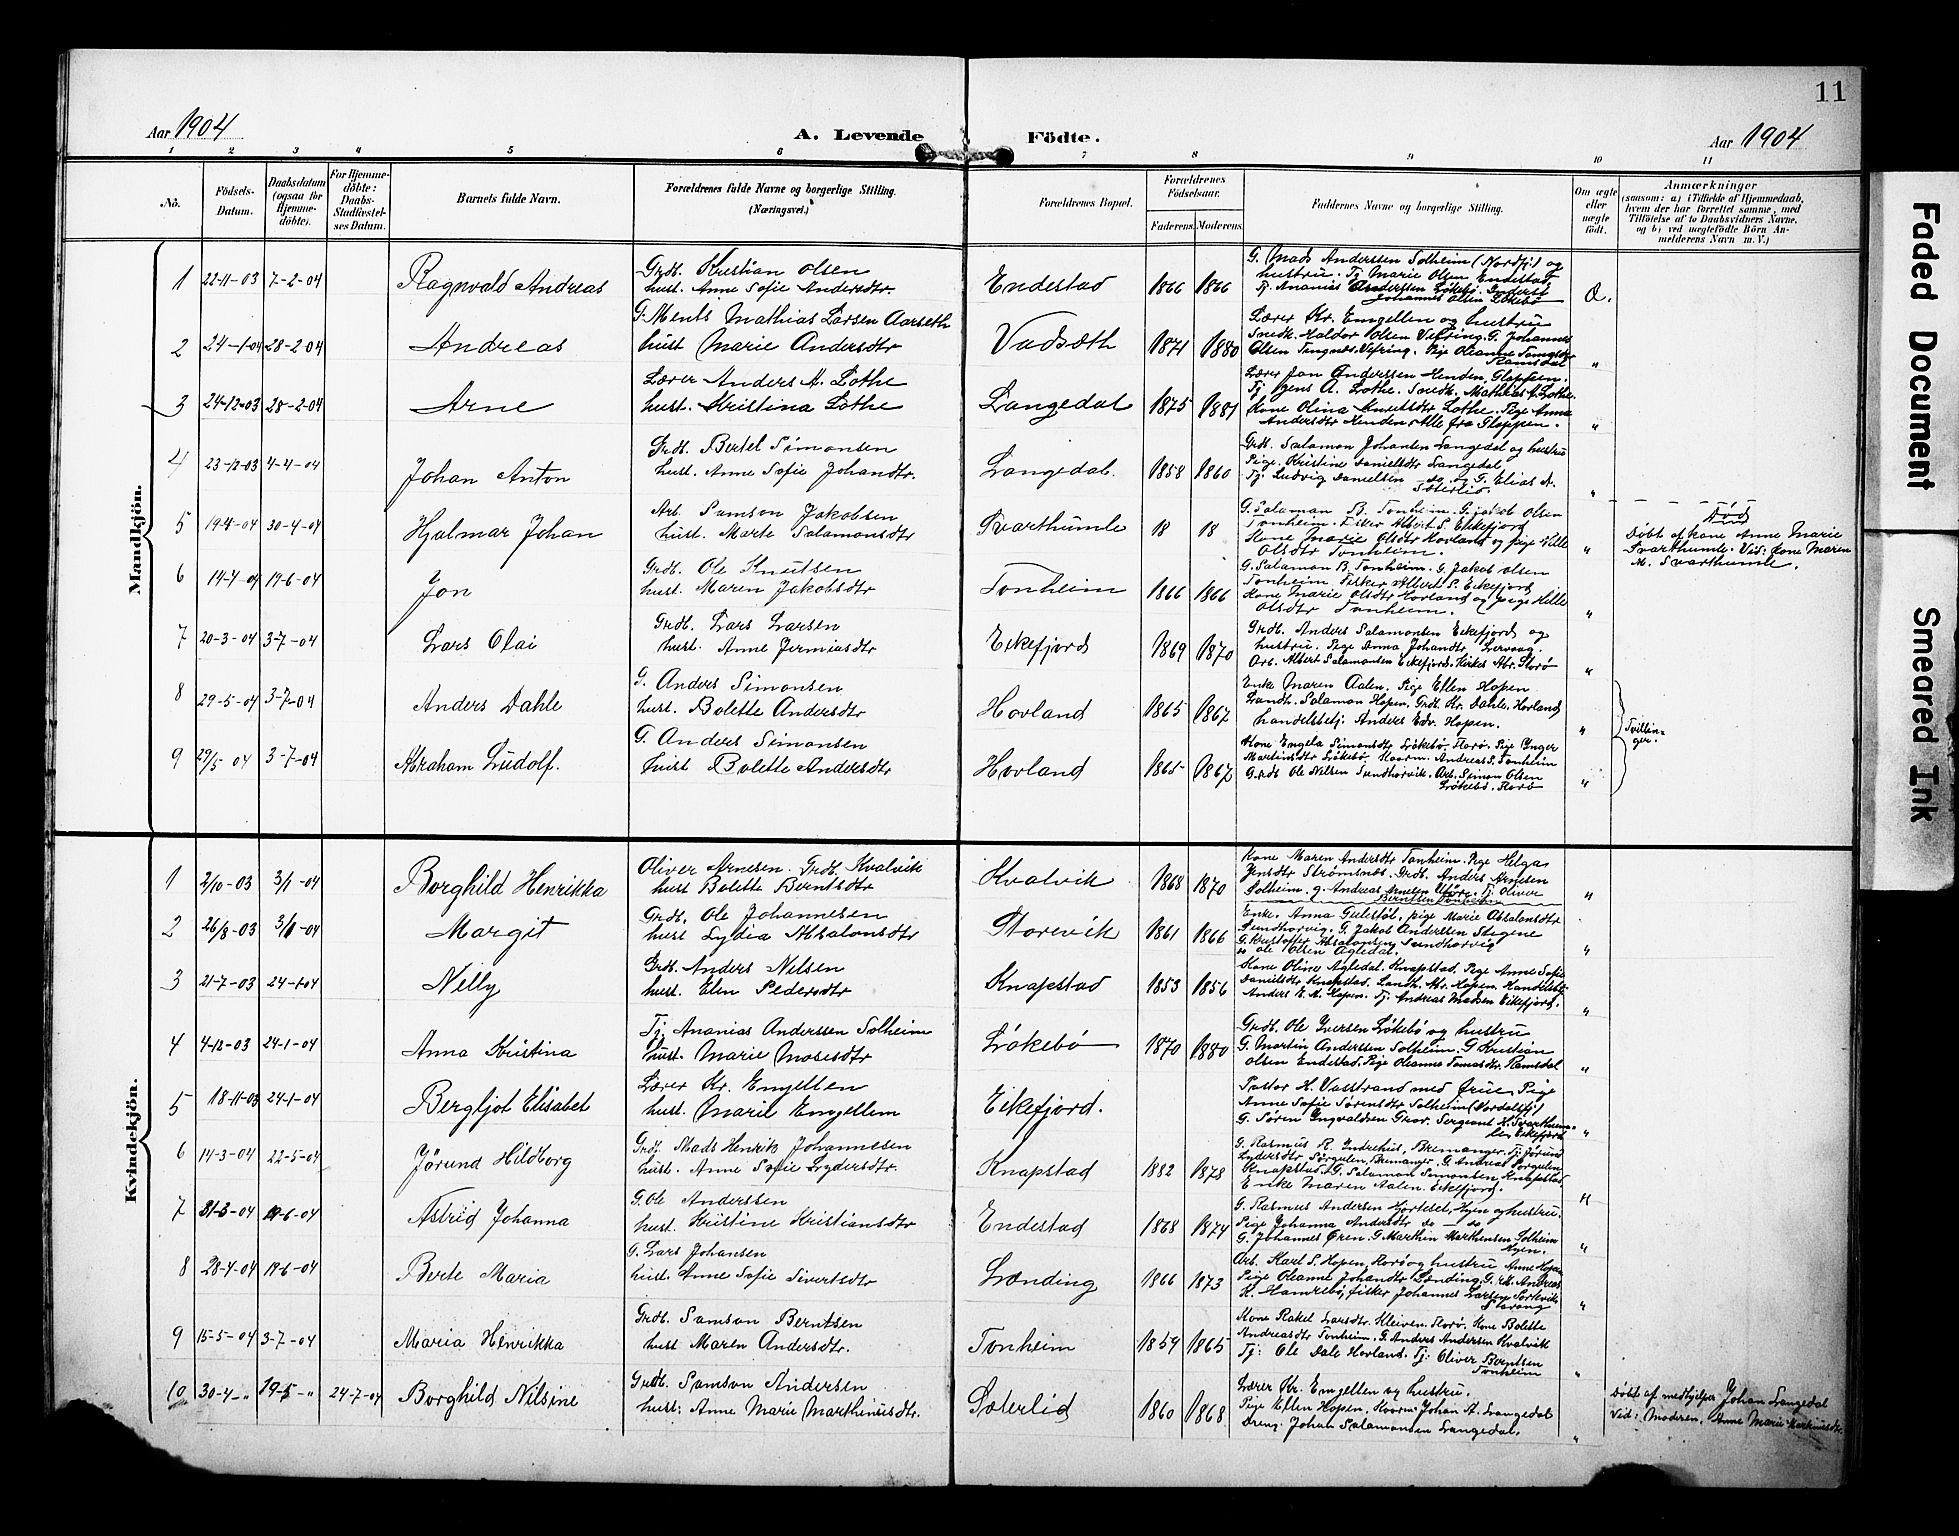 11
Aar 1904
A. Levende Födte.
Aar 1904
1 2 3 4 5 6 7 8 9 10 11
No.
Födsels-Datum.
Daabsdatum (ogsaa for Hjemme-döbte).
For Hjemme-döbte: Daabs-Stadfæstel-ses Datum.
Barnets fulde Navn.
Forældrenes fulde Navne og borgerlige Stilling. (Næringsvei.)
Forældrenes Bopæl.
Forældrenes Födselsaar.
Faderens. Moderens.
Faddernes Navne og borgerlige Stilling.
Om ægte eller uægte födt.
Anmærkninger
(saasom: a) i Tilfælde af Hjemmedaab, hvem der har forrettet samme, med Tilföielse af to Daabsvidners Navne, og b) ved uægtefödte Börn An-melderens Navn m. V.)
Mandkjön.
1 22-11-03 7-2-04 Ragnvald Andreas Grdb. Kristian Olsen
hust. Anne Sofie Andersdtr. Endestad 1866 1866
G. Mads Anderssen Solheim (Nordfj.) og
hustru. Tj. Marie Olsen Endestad
Tj. Ananias Anderssen Løkebø.
Johannes Olsen Løkebø
2 24-1-04 28-2-04 Andreas G. Ments Mathias Larsen Aarseth
hust Marie Andersdtr Vadsæth 1871 1880
Lærer Kr. Emgellen og hustru
Snedk. Haldor Olsen Vefring. G. Johannes
Olsen Tengnæs. Vefring. Pige Oleanne Tomasdtr
Ramsdal "
3 24-12-03 28-2-04 Arne Lærer Anders A. Lothe
hust. Kristina Lothe Langedal 1875 1881
Lærer Jon Anderssen Henden, Gloppen.
Tj. Jens A. Lothe. Snedk. Mathias A. Lothe.
Kone Olina Knutsdtr Lothe. Pige Anna
Andersdtr Henden, Alle fra Gloppen. "
4 23-12-03 4-4-04 Johan Anton Grdb. Bertel Simonsen
hust. Anne Sofie Johandtr. Langedal. 1858 1860
Grdb. Salamon Johansen Langedal og hustru
Pige Kristine Danielsdtr Langedal
Tj. Ludvig Danielsen do og G. Elias A.
Sæterlid. "
5 19-4-04 30-4-04 Hjalmar Johan Arb. Samson Jakobsen
hust. Marte Salamonsdtr Svarthumle 18 18
G. Salaman B. Tonheim. G. Jakob Olsen
Tonheim. Fisker Albert S. Eikefjord
Kone Marie Olsdtr Hovland og pige Hille
Olsdtr Tonheim. "
Død
Døbt af kone Anne Marie
Svarthumle. Vid: Kone Maren
M. Svarthumle.
6 14-4-04 19-6-04 Jon Grdb. Ole Knutsen
hust. Maren Jakobsdtr Tonheim 1866 1866
G. Salaman B. Tonheim. G. Jakob Olsen
Tonheim. Fisker Albert S. Eikefjord
Kone Marie Olsdtr Hovland og pige Hille
Olsdtr Tonheim. "
7 20-3-04 3-7-04 Lars Olai Grdb. Lars Larsen
hust. Anne Jermiasdtr Eikefjord 1869 1870
Grdb. Anders Salamonsen Eikefjord og
hustru. Pige Anna Johandtr Lervaag.
Arb. Albert Salamonsen Eikefjord. "
8 29-5-04 3-7-04 Anders Dahle G. Anders Simonsen
hust. Bolette Andersdtr Hovland 1865 1867
Enke Maren Aalen. Pige Ellen Hopen
Landh. Salaman Hopen. Grdb. Kr. Dahle. Hovland
handelsbetj. Anders Edv. Hopen. "
Tvillin-
ger.
9 29/5 04 3-7-04 Abraham Ludolf. G. Anders Simonsen
hust Bolette Andersdtr Hovland 1865 1867
Kone Engela Simonsdtr Løkebø. Florø. Pige Inger
Martinsdtr Løkebø. Andreas S. Tonheim
Grdb Ole Nilsen Sundhorvik. Arb. Simon Olsen
Løkebø. Florø "
Kvindekjön.
1 2/10-03 3/1-04 Borghild Henrikka Oliver Arnesen. Grdb. Kvalvik
hust Bolette Berntsdtr Kvalvik 1868 1870
Kone Maren Andersdtr Tonheim. Pige Helga
Jensdtr Strømsnæs. Grdb. Anders Arnesen
Solheim. G. Andreas Arnesen Tj. Oliver
Berntsen Tonheim "
2 26/8-03 3/1-04 Margit Grdb. Ole Johannesen
hust Lydia Absalonsdtr Storevik 1861 1866
Enke Anna Gulestøl, pige Marie Absalonsdtr
Sundhorvig. G. Jakob Anderssen Stegene
G. Kristoffer Absalonsen Sundhorvig
Ole Olsen Agledal. "
3 21-7-03 24-1-04 Nelly Grdb. Anders Nilsen
hust. Elen Pedersdtr Knapstad 1853 1856
Kone Oline Agledal. Knapstad. Pige Anne Sofie
Danielsdtr Knapstad. Landh. Abr. Hopen. Handelsbetj.
Anders E. A. Hopen. Tj. Andreas Madsen Eikefjord. "
4 4-12-03 24-1-04 Anna Kristina Tj. Ananias Anderssen Solheim
hust. Marie Mosesdtr Løkebø 1870 1880
Grdb. Ole Iversen Løkebø og hustru
G. Martin Anderssen Solheim. G Kristian
Olsen Endestad. Pige Oleanna Tomasdtr. Ramsdal "
5 18-11-03 24-1-04 Bergljot Elisabet Lærer Kr. Emgellen
hust. Marie Emgellem Eikefjord.
Pastor H. Vasstrand med frue. Pige
Anne Sofie Sørensdtr Solheim (Nordalsfj.)
G. Søren Ingvaldsen Grov. Sergeant K. Svarthum-
le. Eikefjord "
6 14-3-04 22-5-04 Jørund Hildborg Grdb. Mads Henrik Johannesen
hust. Anne Sofie Lydersdtr. Knapstad 1882 1878
G. Rasmus R. Indrehus, Bremanger. Tj. Jørund
Lydersdtr Sørgulen, Bremanger. G. Andreas Sørgulen
Knapstad. G. Salaman Simonsen Knapstad
Enke Maren Aalen. Eikefjord. "
7 31-3-04 19-6-04 Astrid Johanna G. Ole Anderssen
hust. Kristine Kristiansdtr Endestad 1868 1874
G. Rasmus Andersen Hjorteset, Hyen og hustru.
Pige Johanna Andersdtr do — do
G. Johannes Øren. G. Marthin Marthinsen Solheim
Hyen. "
8 28-4-04 19-6-04 Berte Maria G. Lars Johansen
hust. Anne Sofie Sivertsdtr Lænding 1866 1873
Arb. Karl S. Hopen, Florø og hustru Anne Hopen
Pige Oleanne Johandtr Lænding. G. M. Andreas
H. Hamrebø, fisker Johannes Larsen
Stavang "
9 15-5-04 3-7-04 Maria Henrikka Grdb. Samson Berntsen
hust Maren Andersdtr. Tonheim 1859 1865
Kone Rakel Larsdtr. Kleiven. Florø. Kone Bolette
Andreasdtr Tonheim. G. Anders Andersen Kvalvik
Tj: Ole Dale Hovland. Tj: Oliver Berntsen
Tonheim "
10 30-4-" 19-5-" 24-7-04 Borghild Nilsine Grdb. Samson Andersen
hust: Anne Marie Marthinusdtr. Sæterlid 1860 1868
Lærer Kr. Emgellen og hustru.
Pige Ellen Hopen, Johan A. Langedal
Dreng Johan Salamonsen Langedal. "
Døbt af medhjelper Johan Langedal
Vid: Moderen, Anne Marie Markusdtr.
Faded Document
Smeared Ink